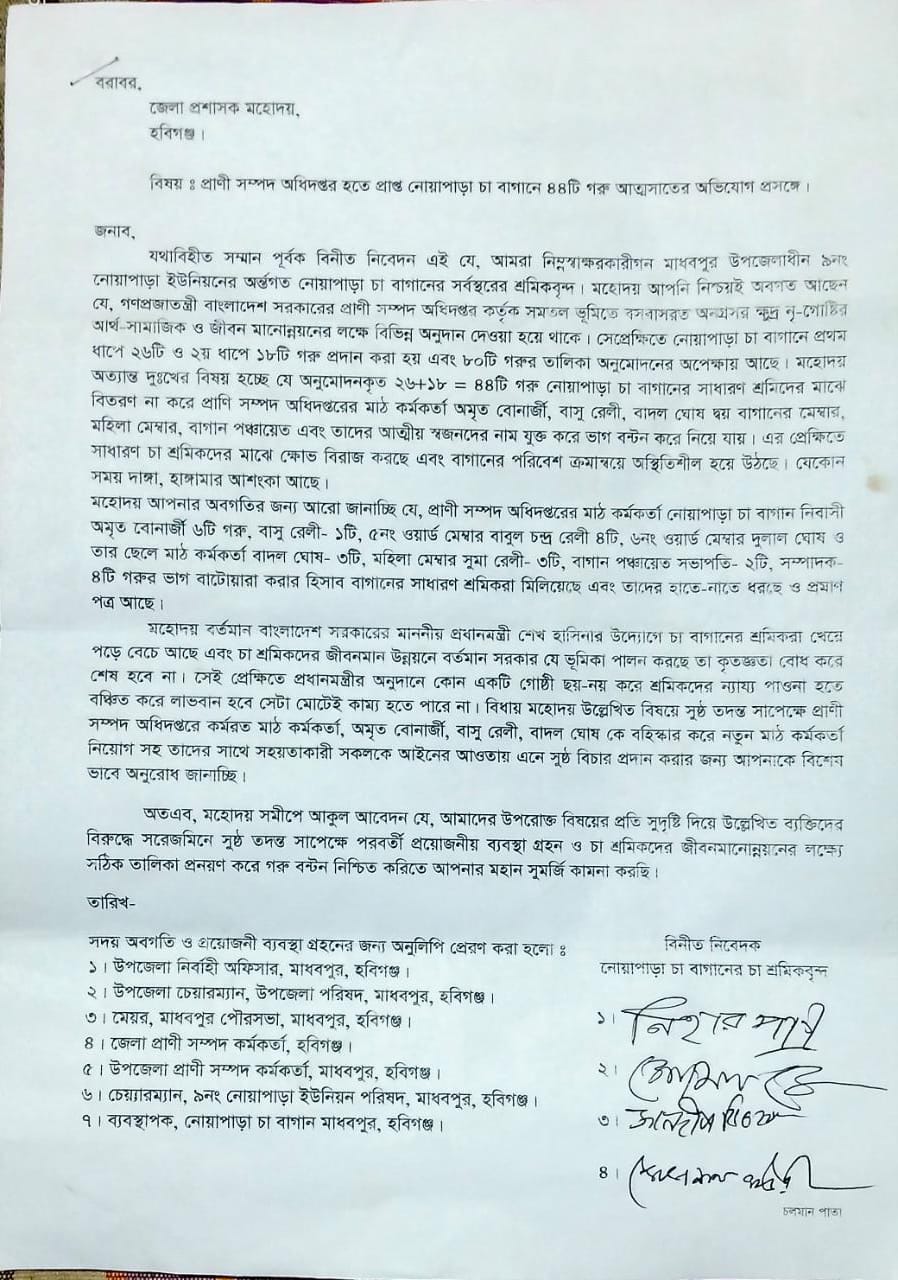 বরাবর,
জেলা প্রশাসক মহোদয়,
হবিগঞ্জ।
বিষয় ঃ প্রাণী সম্পদ অধিদপ্তর হতে প্রাপ্ত নোয়াপাড়া চা বাগানে ৪৪টি গরু আত্মসাতের অভিযোগ প্রসঙ্গে।
জনাব,
যথাবিহীত সম্মান পূর্বক বিনীত নিবেদন এই যে, আমরা নিম্নস্বাক্ষরকারীগন মাধবপুর উপজেলাধীন ৯নং
নোয়াপাড়া ইউনিয়নের অর্ন্তগত নোয়াপাড়া চা বাগানের সর্বস্থরের শ্রমিকবৃন্দ। মহোদয় আপনি নিশ্চয়ই অবগত আছেন
যে, গণপ্রজাতন্ত্রী বাংলাদেশ সরকারের প্রাণী সম্পদ অধিদপ্তর কর্তৃক সমতল ভূমিতে বসবাসরত অনগ্রসর ক্ষুদ্র নৃ-গোষ্ঠির
আর্থ-সামাজিক ও জীবন মানোন্নয়নের লক্ষে বিভিন্ন অনুদান দেওয়া হয়ে থাকে। সেপ্রেক্ষিতে নোয়াপাড়া চা বাগানে প্রথম
ধাপে ২৬টি ও ২য় ধাপে ১৮টি গরু প্রদান করা হয় এবং ৮০টি গরুর তালিকা অনুমোদনের অপেক্ষায় আছে। মহোদয়
অত্যান্ত দুঃখের বিষয় হচ্ছে যে অনুমোদনকৃত ২৬+১৮ = ৪৪টি গরু নোয়াপাড়া চা বাগানের সাধারণ শ্রমিকদের মাঝে
বিতরণ না করে প্রাণি সম্পদ অধিদপ্তরের মাঠ কর্মকর্তা অমৃত বোনার্জী, বাসু রেলী, বাদল ঘোষ দ্বয় বাগানের মেম্বার,
মহিলা মেম্বার, বাগান পঞ্চায়েত এবং তাদের আত্মীয় স্বজনদের নাম যুক্ত করে ভাগ বন্টন করে নিয়ে যায়। এর প্রেক্ষিতে
সাধারণ চা শ্রমিকদের মাঝে ক্ষোভ বিরাজ করছে এবং বাগানের পরিবেশ ক্রমান্বয়ে অস্থিতিশীল হয়ে উঠছে। যেকোন
সময় দাঙ্গা, হাঙ্গামার আশংকা আছে।
মহোদয় আপনার অবগতির জন্য আরো জানাচ্ছি যে, প্রাণী সম্পদ অধিদপ্তরের মাঠ কর্মকর্তা নোয়াপাড়া চা বাগান নিবাসী
অমৃত বোনার্জী ৬টি গরু, বাসু রেলী- ১টি, ৫নং ওয়ার্ড মেম্বার বাবুল চন্দ্র রেলী ৪টি, ৬নং ওয়ার্ড মেম্বার দুলাল ঘোষ ও
তার ছেলে মাঠ কর্মকর্তা বাদল ঘোষ- ৩টি, মহিলা মেম্বার সুমা রেলী- ৩টি, বাগান পঞ্চায়েত সভাপতি- ২টি, সম্পাদক-
৪টি গরুর ভাগ বাটোয়ারা করার হিসাব বাগানের সাধারণ শ্রমিকরা মিলিয়েছে এবং তাদের হাতে-নাতে ধরছে ও প্রমাণ
পত্র আছে।
মহোদয় বর্তমান বাংলাদেশ সরকারের মাননীয় প্রধানমন্ত্রী শেখ হাসিনার উদ্যোগে চা বাগানের শ্রমিকরা খেয়ে
পড়ে বেচে আছে এবং চা শ্রমিকদের জীবনমান উন্নয়নে বর্তমান সরকার যে ভূমিকা পালন করছে তা কৃতজ্ঞতা বোধ করে
শেষ হবে না। সেই প্রেক্ষিতে প্রধানমন্ত্রীর অনুদানে কোন একটি গোষ্ঠী ছয়-নয় করে শ্রমিকদের ন্যায্য পাওনা হতে
বঞ্চিত করে লাভবান হবে সেটা মোটেই কাম্য হতে পারে না। বিধায় মহোদয় উল্লেখিত বিষয়ে সুষ্ঠ তদন্ত সাপেক্ষে প্রাণী
সম্পদ অধিদপ্তরে কর্মরত মাঠ কর্মকর্তা, অমৃত বোনার্জী, বাসু রেলী, বাদল ঘোষ কে বহিস্কার করে নতুন মাঠ কর্মকর্তা
নিয়োগ সহ তাদের সাথে সহয়তাকারী সকলকে আইনের আওতায় এনে সুষ্ঠ বিচার প্রদান করার জন্য আপনাকে বিশেষ
ভাবে অনুরোধ জানাচ্ছি।
অতএব, মহোদয় সমীপে আকুল আবেদন যে, আমাদের উপরোক্ত বিষয়ের প্রতি সুদৃষ্টি দিয়ে উল্লেখিত ব্যক্তিদের
বিরুদ্ধে সরেজমিনে সুষ্ঠ তদন্ত সাপেক্ষে পরবর্তী প্রয়োজনীয় ব্যবস্থা গ্রহন ও চা শ্রমিকদের জীবনমানোন্নয়নের লক্ষ্যে
সঠিক তালিকা প্রনয়ণ করে গরু বন্টন নিশ্চিত করিতে আপনার মহান সুমর্জি কামনা করছি।
তারিখ-
সদয় অবগতি ও প্রয়োজনী ব্যবস্থা গ্রহনের জন্য অনুলিপি প্রেরণ করা হলো ঃ
১। উপজেলা নির্বাহী অফিসার, মাধবপুর, হবিগঞ্জ।
২। উপজেলা চেয়ারম্যান, উপজেলা পরিষদ, মাধবপুর, হবিগঞ্জ।
৩। মেয়র, মাধবপুর পৌরসভা, মাধবপুর, হবিগঞ্জ।
৪। জেলা প্রাণী সম্পদ কর্মকর্তা, হবিগঞ্জ।
৫। উপজেলা প্রাণী সম্পদ কর্মকর্তা, মাধবপুর, হবিগঞ্জ।
৬। চেয়্যারম্যান, ৯নং নোয়াপাড়া ইউনিয়ন পরিষদ, মাধবপুর, হবিগঞ্জ।
৭। ব্যবস্থাপক, নোয়াপাড়া চা বাগান মাধবপুর, হবিগঞ্জ।
বিনীত নিবেদক
নোয়াপাড়া চা বাগানের চা শ্রমিকবৃন্দ
১। নিহার
২।
৩।
৪।
চলমান পাতা